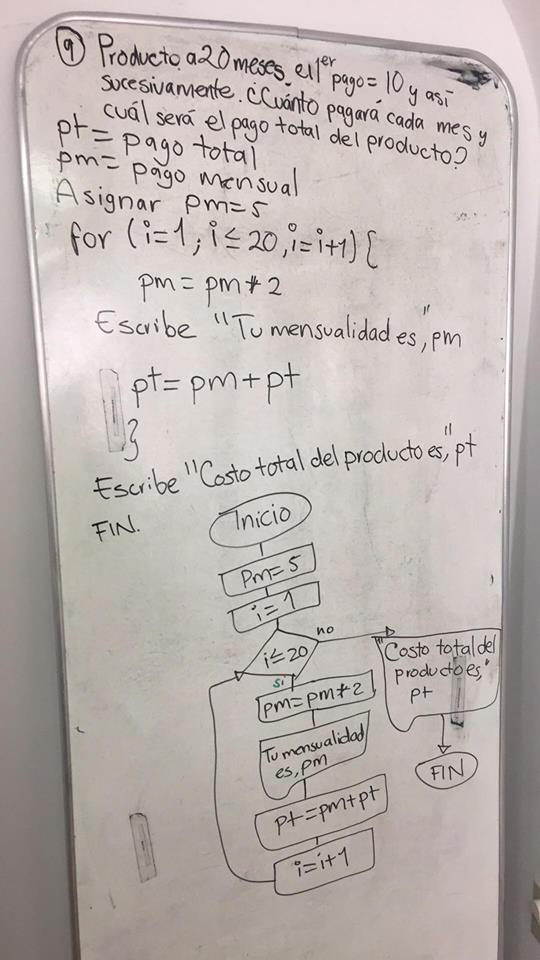 9 Producto a 20 meses, el 1er pago = 10 y así
sucesivamente. ¿Cuánto pagará cada mes y
cuál será el pago total del producto?
pt = pago total
pm = pago mensual
Asignar pm=5
for (i=1; i≤20, i=i+1) {
pm = pm * 2
Escribe "Tu mensualidad es," pm
pt = pm + pt
}
Escribe "Costo total del producto es," pt
FIN.
Inicio
pm=5
i=1
i≤20
no
si
"Costo total del
producto es,"
pt
FIN
pm=pm*2
Tu mensualidad
es, pm
pt=pm+pt
i=i+1